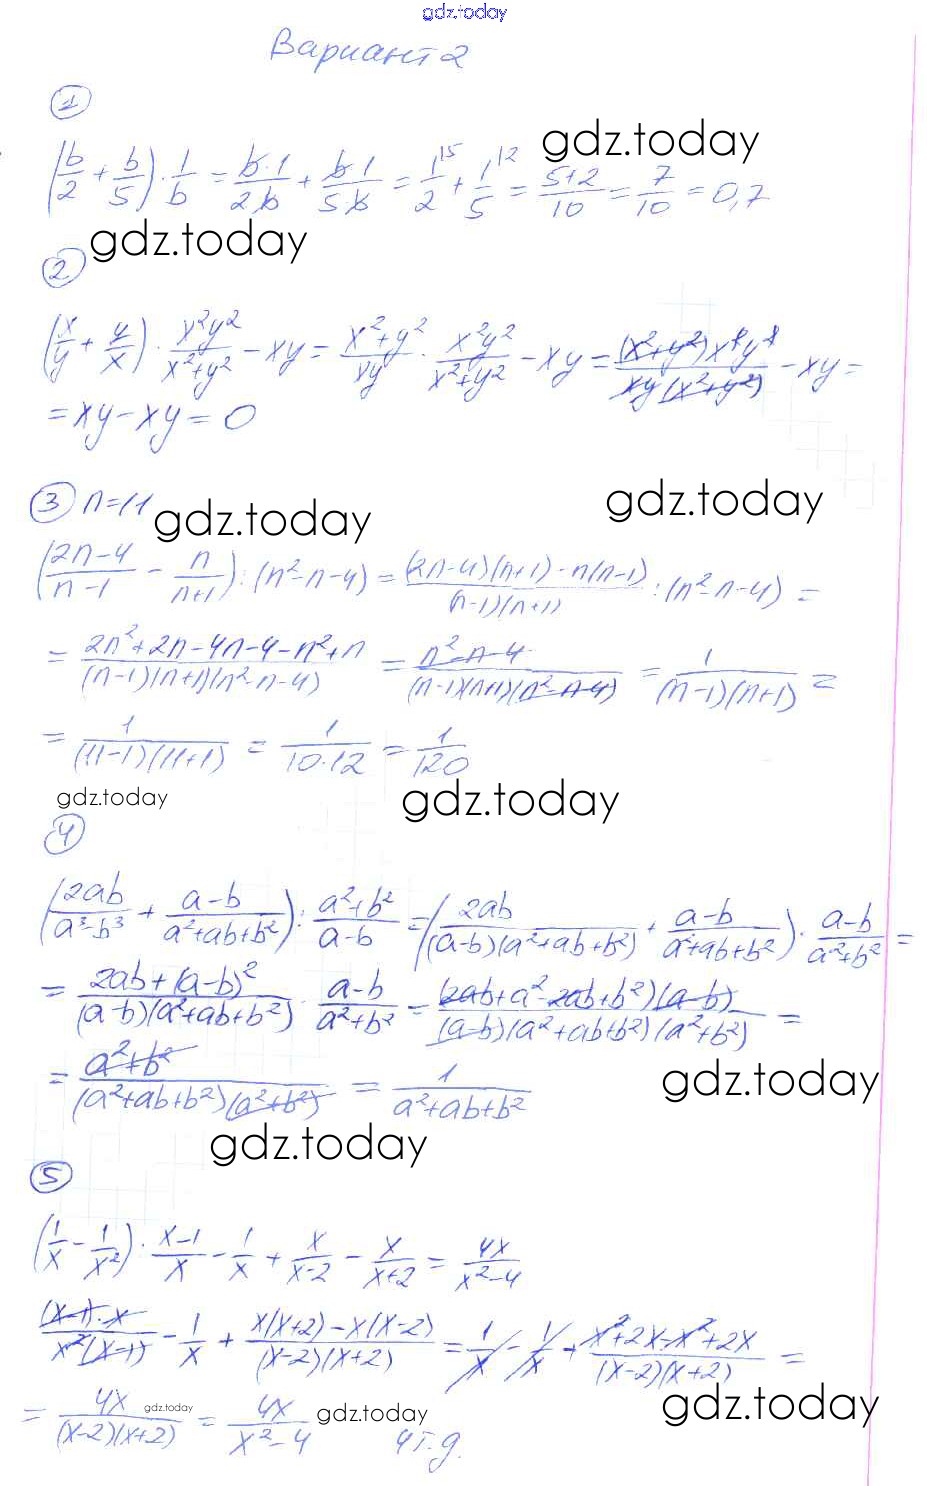 gdz.today
Вариант 2
1
(b/2 + b/5) · 1/b = b·1/2b + b·1/5·b = 1^15/2 + 1^12/5 = 5+2/10 = 7/10 = 0,7
gdz.today
gdz.today
2
(x/y + y/x) · x²y²/x²+y² - xy = x²+y²/xy · x²y²/x²+y² - xy = (x²+y²)x²y²/xy(x²+y²) - xy =
= xy - xy = 0
3 n=11
gdz.today
gdz.today
(2n-4/n-1 - n/n+1) : (n²-n-4) = (2n-4)(n+1)-n(n-1)/(n-1)(n+1) : (n²-n-4) =
= 2n²+2n-4n-4-n²+n/(n-1)(n+1)(n²-n-4) = n²-n-4/(n-1)(n+1)(n²-n-4) = 1/(n-1)(n+1) =
= 1/(11-1)(11+1) = 1/10·12 = 1/120
gdz.today
gdz.today
4
(2ab/a³-b³ + a-b/a²+ab+b²) : a²+b²/a-b = (2ab/(a-b)(a²+ab+b²) + a-b/a²+ab+b²) · a-b/a²+b² =
= 2ab+(a-b)²/(a-b)(a²+ab+b²) · a-b/a²+b² = (2ab+a²-2ab+b²)(a-b)/(a-b)(a²+ab+b²)(a²+b²) =
= a²+b²/(a²+ab+b²)(a²+b²) = 1/a²+ab+b²
gdz.today
gdz.today
5
(1/x - 1/x²) : x-1/x - 1/x + x/x-2 - x/x+2 = 4x/x²-4
(x-1)·x/x²(x-1) - 1/x + x(x+2)-x(x-2)/(x-2)(x+2) = 1/x - 1/x + x²+2x-x²+2x/(x-2)(x+2) =
= 4x/(x-2)(x+2) = 4x/x²-4 ч.т.д.
gdz.today
gdz.today
gdz.today